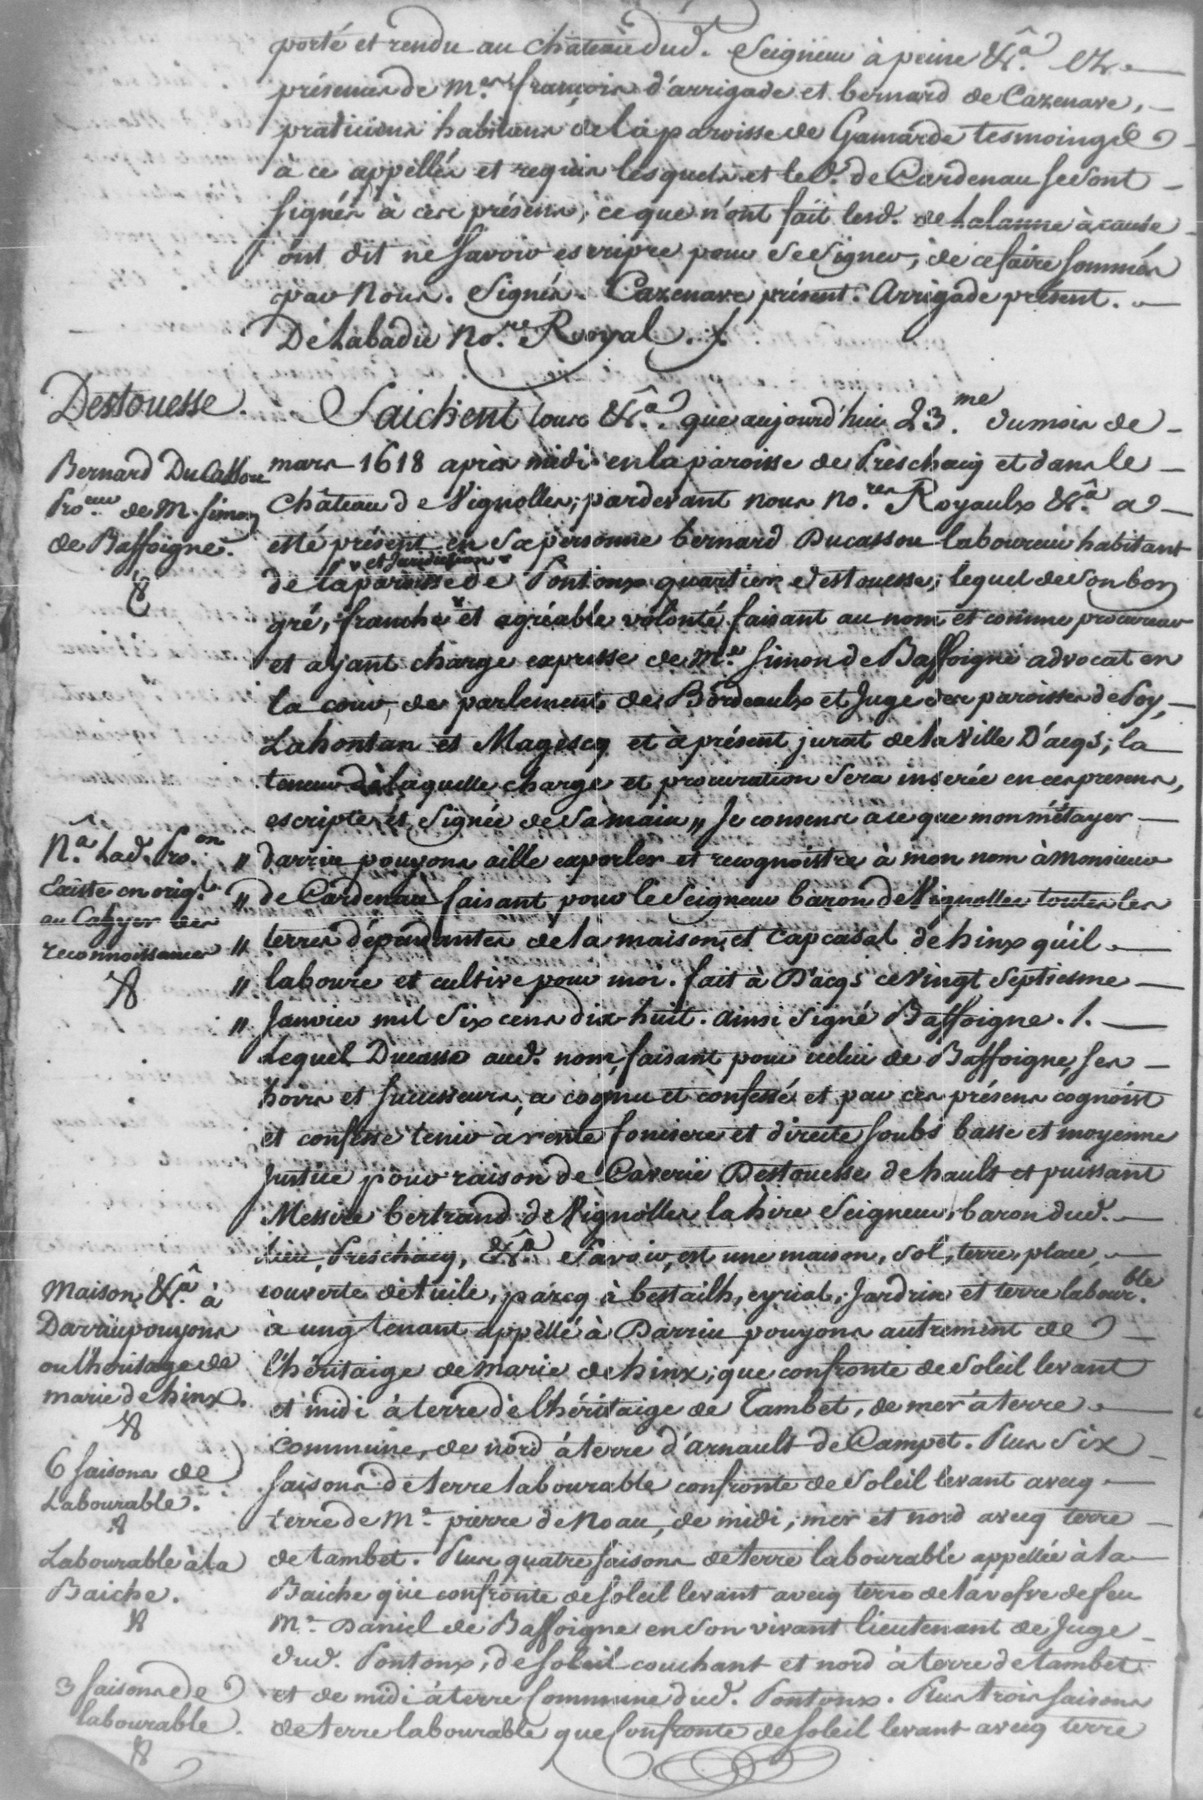 porté et rendu au château dud. Seigneur à peine &ca. ez
présences de Me. françois d'arrigade et bernard de Cazenave,
praticiens habitans de la paroisse de Gamarde tesmoingz
à ce appellés et requis lesquels et led. de Cardenau se sont
signés à ces présens, ce que n'ont fait lesd. de Lalanne à cause
ont dit ne savoir escripre pour se signer, de ce faire sommés
par Nous. Signés. Cazenave présent. Arrigade présent.
De Labadie No.re Royal.
Destouesse.
Saichent tous &ca. que aujourd'hui 23.me du mois de
mars 1618 après midi en la paroisse de Preschacq et dans le
Château de Vignolles, pardevant nous No.res Royaulx &ca. a
esté présent en sa personne bernard Ducassou laboureur habitant
et Juridiction
de la paroisse de Pontonx quartier destouesse, lequel de son bon
gré, franche et agréable volonté faisant au nom et comme procureur
et ayant charge expresse de Me. Simon de Baffoigne advocat en
la cour de parlement de Bordeaulx et Juge des paroisses de Poy,
Lahontan et Magescq et à présent jurat de la Ville D'acqs, la
teneur de laquelle charge et procuration sera inserée en ces presens,
escripte et signée de sa main „ Je consens à ce que mon métayer
„ darriu pouyons aille exporler et recognoistre à mon nom à Monsieur
„ de Cardenau faisant pour le Seigneur baron de Vignolles toutes les
„ terres dépendantes de la maison et capcasal de hinx qu'il
„ laboure et cultive pour moi. fait à D'acqs ce vingt septiesme
„ Janvier mil six cens dix-huit. ainsi signé Baffoigne. /.
Lequel Ducasse aud. nom, faisant pour icelui de Baffoigne, ses
hoirs et successeurs, a cognu et confessé et par ces présens cognoist
et confesse tenir à rente fonciere et directe soubs basse et moyenne
Justice pour raison de Caverie Destouesse de hault et puissant
Messire bertrand de Vignolles la hire Seigneur, baron dud.
lieu, Preschacq, &ca. Savoir, est une maison, sol, terre, place,
couverte de tuile, parcq à bestailh, eyrial, Jardrin et terre labour.ble
à ung tenant appellé à Darriu pouyons autrement de
l'héritaige de marie de hinx, que confronte de soleil levant
et midi à terre de l'héritaige de Tambet, de mer à terre
commune, de nord à terre d'arnault de Campet. Plus Six
saisons de terre labourable confronte de soleil levant avecq
terre de Me. pierre de Noau, de midi, mer et nord avecq terre
de tambet. Plus quatre saisons de terre labourable appellée à la
Baiche qui confronte de soleil levant avecq terre de feu
Me. Daniel de Baffoigne en son vivant lieutenant de Juge
dud. Pontonx, de soleil couchant et nord à terre de tambet
et de midi à terre commune dud. Pontonx. Plus trois saisons
de terre labourable que confronte de soleil levant avecq terre
Bernard Du Cassou
Pro.eur de M. Simon
de Baffoigne.
Na. Lad. Pro.on
Existe en orig.l
au Cahyer des
reconnoissances
Maison, &ca. à
Darriupouyons
ou l'heritage de
marie de hinx.
6 saisons de
Labourable.
Labourable à la
Baiche.
3 saisons de
labourable.